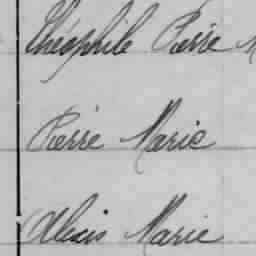 Théophile Pierre M
Pierre Marie
Alexis Marie